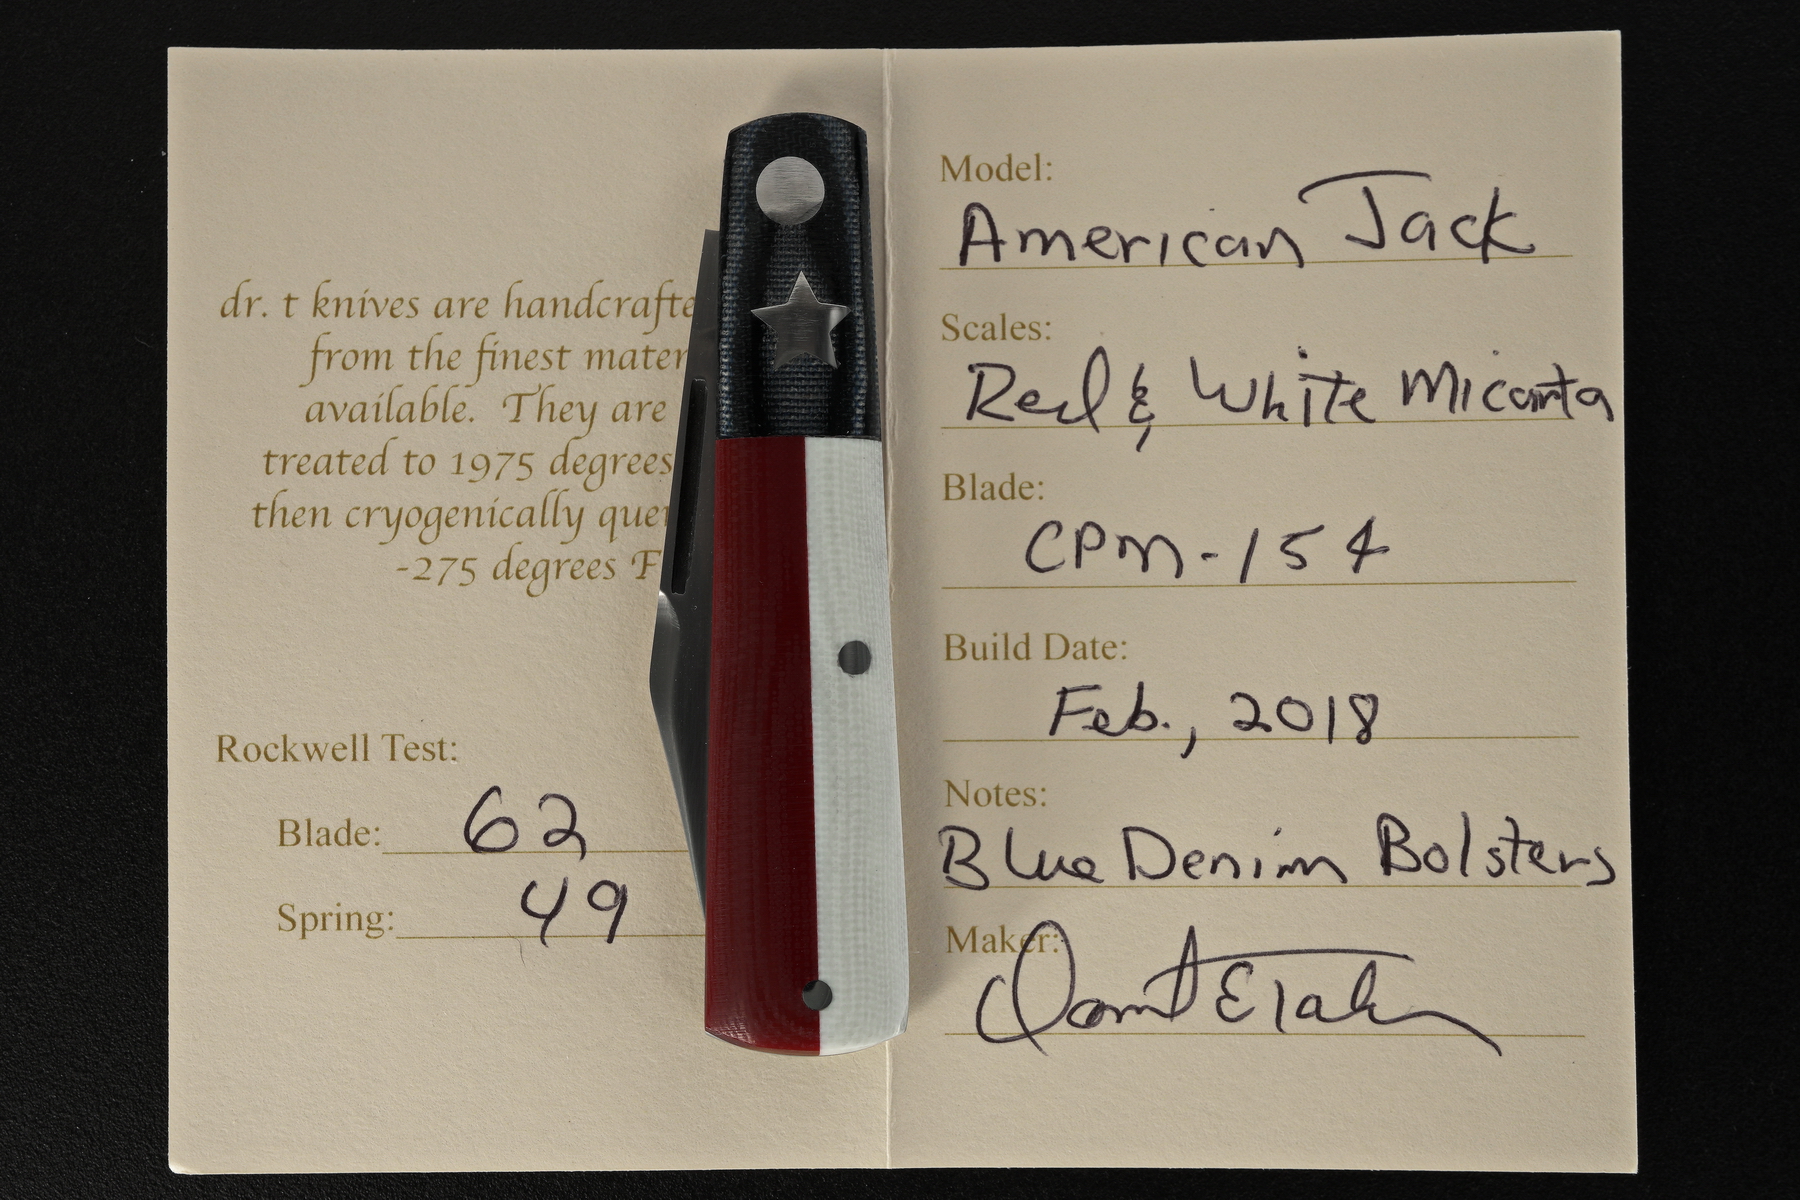 dr. t knives are handcrafte
from the finest mater
available. They are
treated to 1975 degrees
then cryogenically quen
-275 degrees F
Rockwell Test:
Blade: 62
Spring: 49
Model:
American Jack
Scales:
Red & White Micarta
Blade:
CPM-154
Build Date:
Feb., 2018
Notes:
Blue Denim Bolsters
Maker: